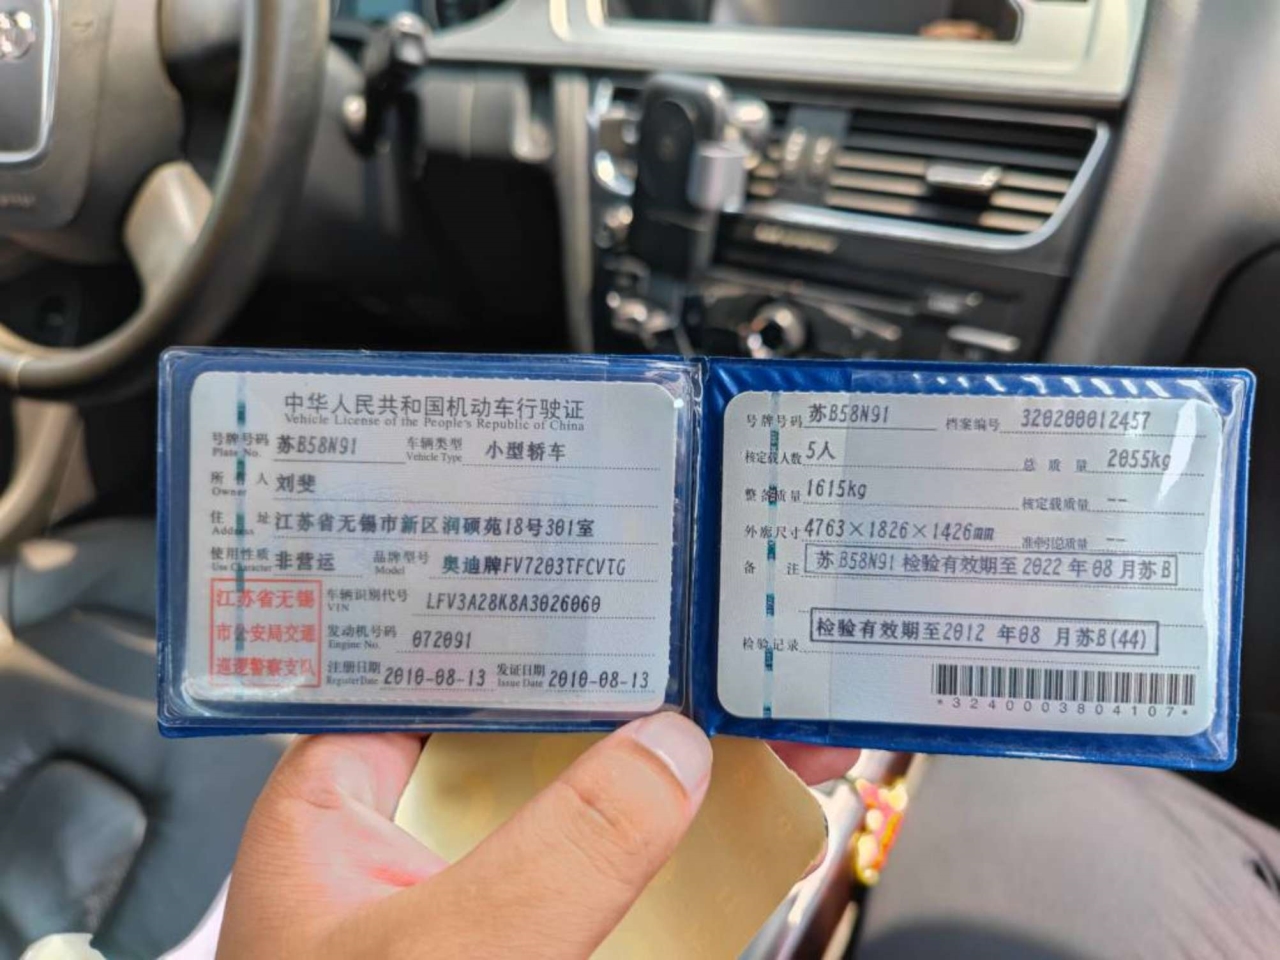 中华人民共和国机动车行驶证
Vehicle License of the People's Republic of China
号牌号码 苏B58N91 车辆类型 小型轿车
Plate No. Vehicle Type
所有人 刘斐
Owner
住址 江苏省无锡市新区润硕苑18号301室
Address
使用性质 非营运 品牌型号 奥迪牌FV7203TFCVTG
Use Character Model
江苏省无锡
市公安局交通
巡逻警察支队
车辆识别代号 LFV3A28K8A3026060
VIN
发动机号码 072091
Engine No.
注册日期 2010-08-13 发证日期 2010-08-13
Register Date Issue Date
号牌号码 苏B58N91 档案编号 320200012457
核定载人数 5人 总质量 2055kg
整备质量 1615kg 核定载质量 --
外廓尺寸 4763×1826×1426mm 准牵引总质量 --
备注 苏B58N91 检验有效期至2022年08月苏B
检验记录 检验有效期至2012年08月苏B(44)
*3240003804107*